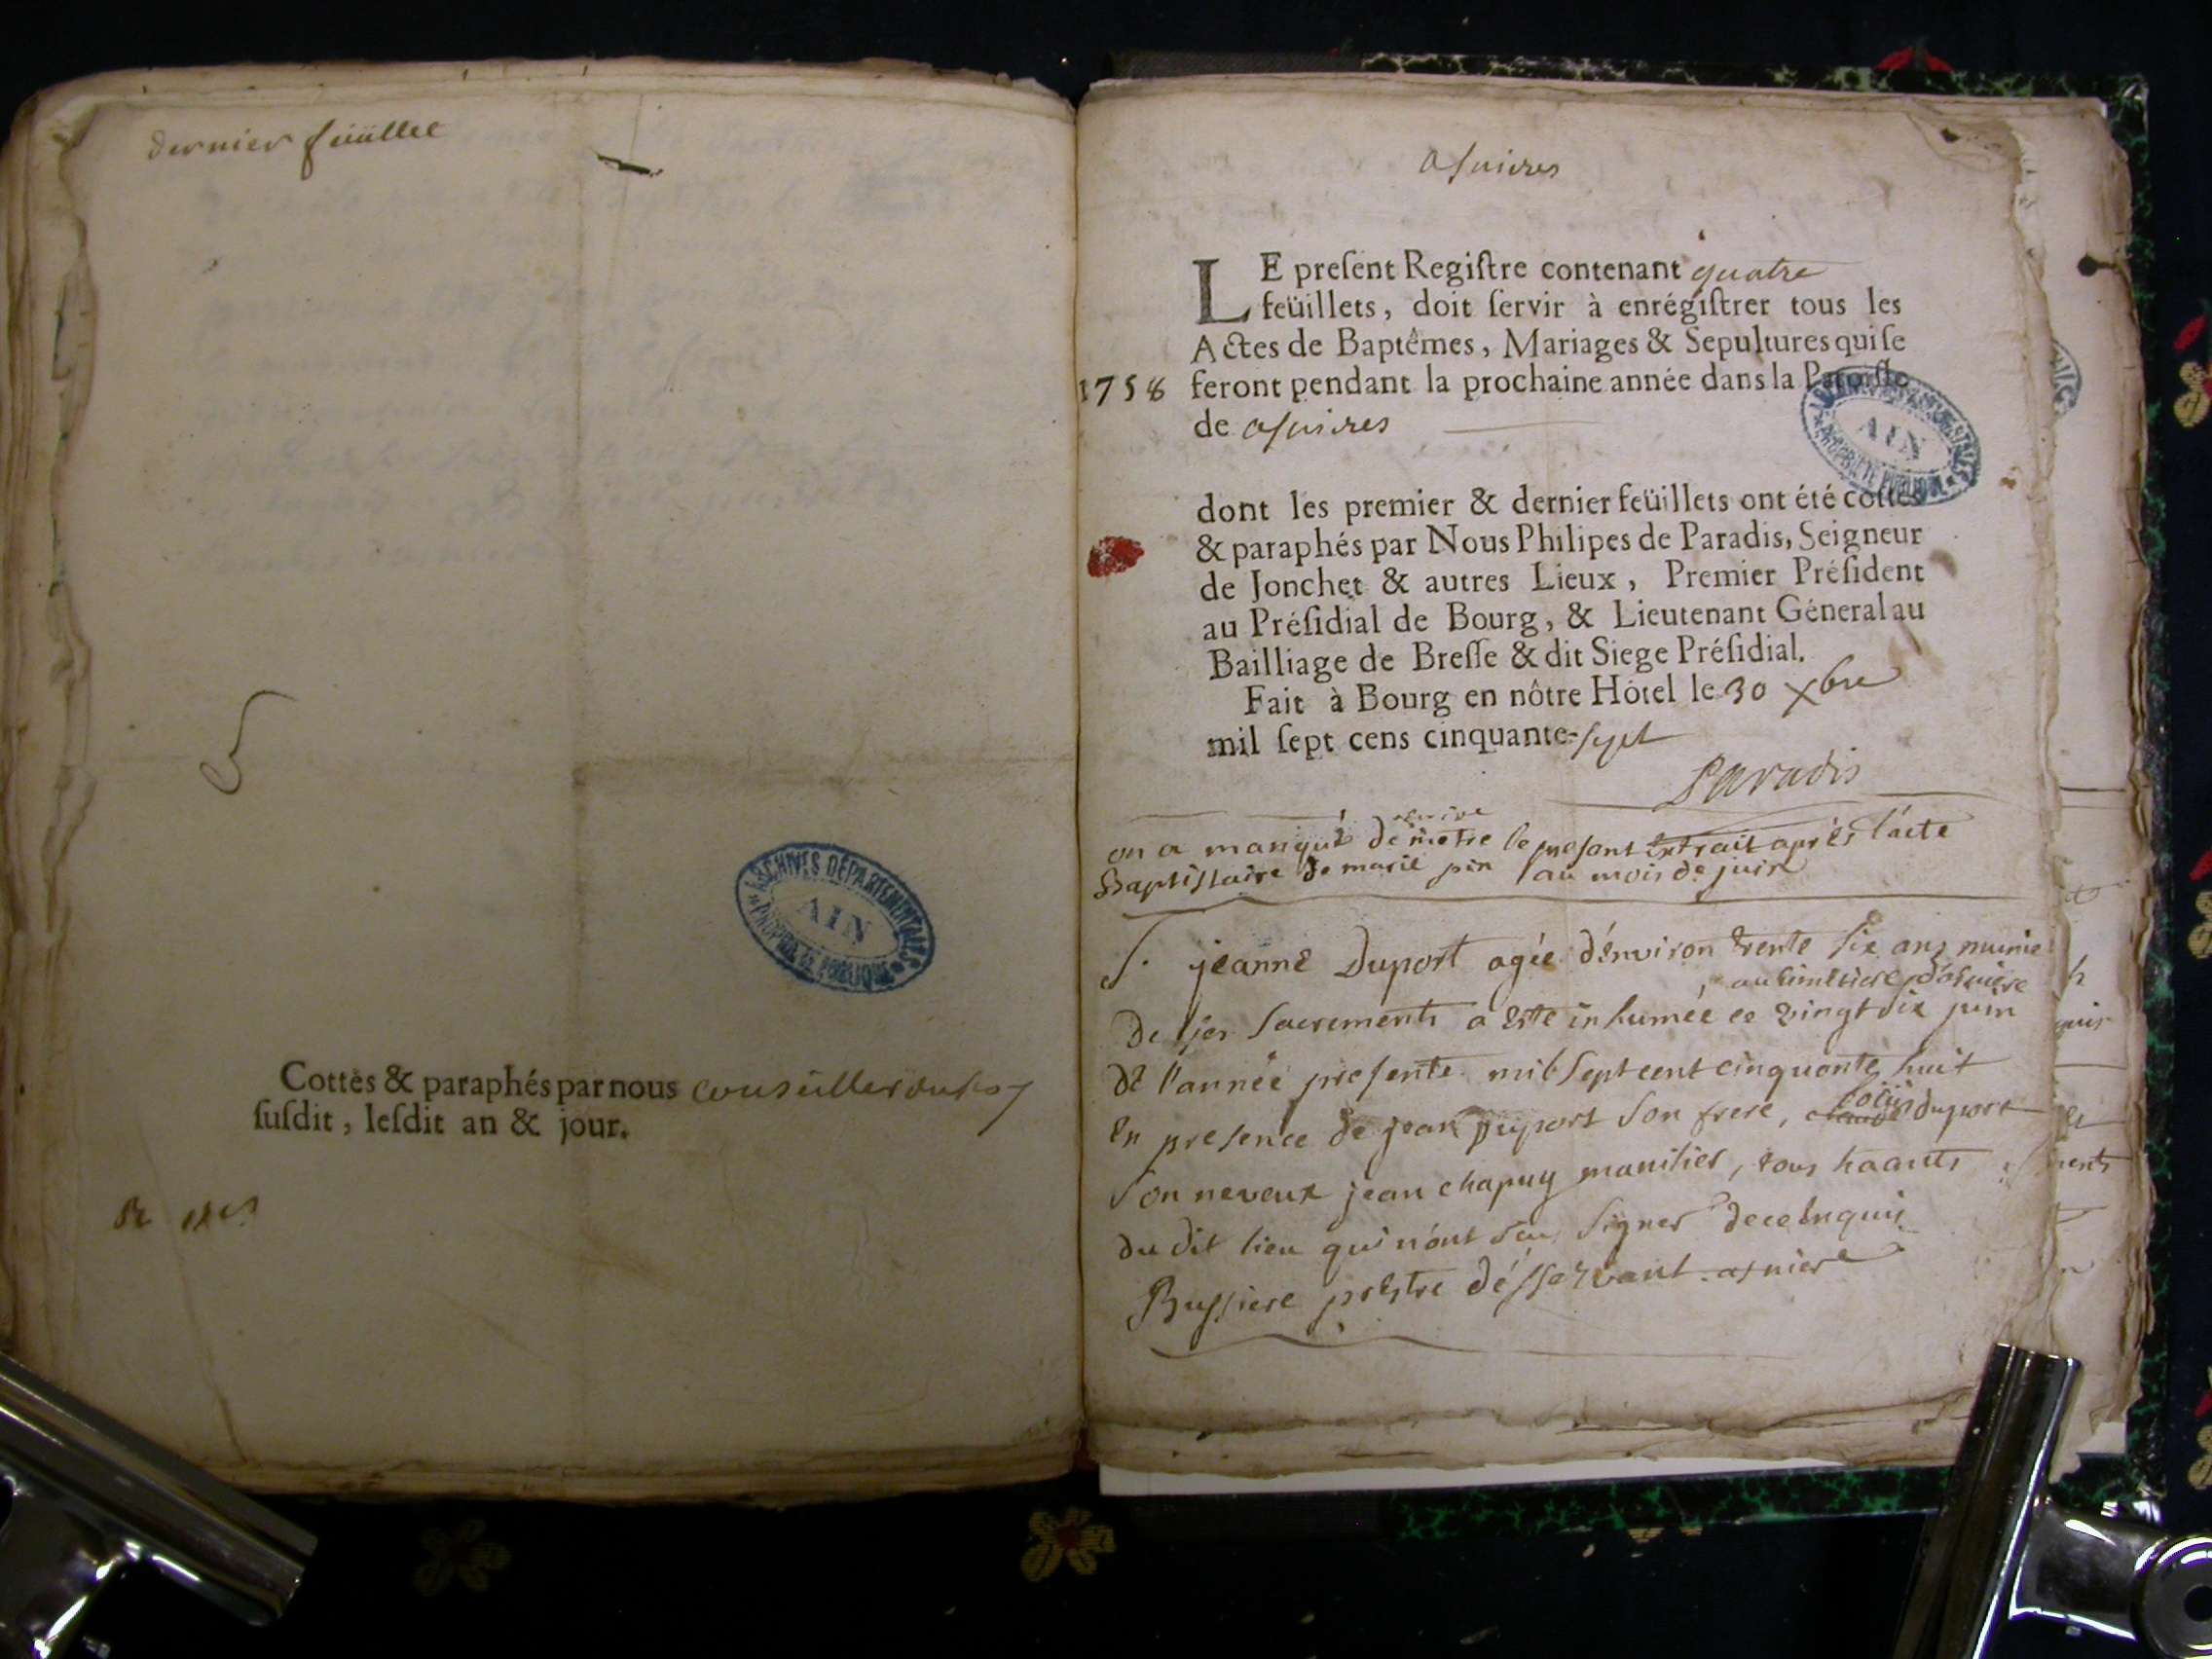 dernier feüillet
Cottès & paraphés par nous conseiller
susdit, lesdit an & jour.
ARCHIVES DEPARTEMENTALES
AIN
PROPRIETE PUBLIQUE
asnieres
LE present Registre contenant quatre
feüillets, doit servir à enrégistrer tous les
Actes de Baptêmes, Mariages & Sepultures qui se
1758 feront pendant la prochaine année dans la Paroisse
de asnieres
ARCHIVES DEPARTEMENTALES
AIN
PROPRIETE PUBLIQUE
dont les premier & dernier feüillets ont été cottés
& paraphés par Nous Philipes de Paradis, Seigneur
de Jonchet & autres Lieux, Premier Président
au Présidial de Bourg, & Lieutenant Géneral au
Bailliage de Bresse & dit Siege Présidial.
Fait à Bourg en nôtre Hôtel le 30 xbre
mil sept cens cinquante-sept
Paradis
on a manqué de metre le present Extrait après l'acte
Baptistaire de marie pin au mois de juin
S. jeanne Duport agée d'environ trente six ans munie
, au cimetiere d'asniere
De ses Sacrements a este inhumée ce vingt six juin
de l'année presente mil sept cent cinquante huit
En presence de jean Duport son frere, duport
son neveux jean chapuy manilier, tous
du dit lieu qui n'ont sçu signer de ce Enquis
Bussiere prestre désservant asniere